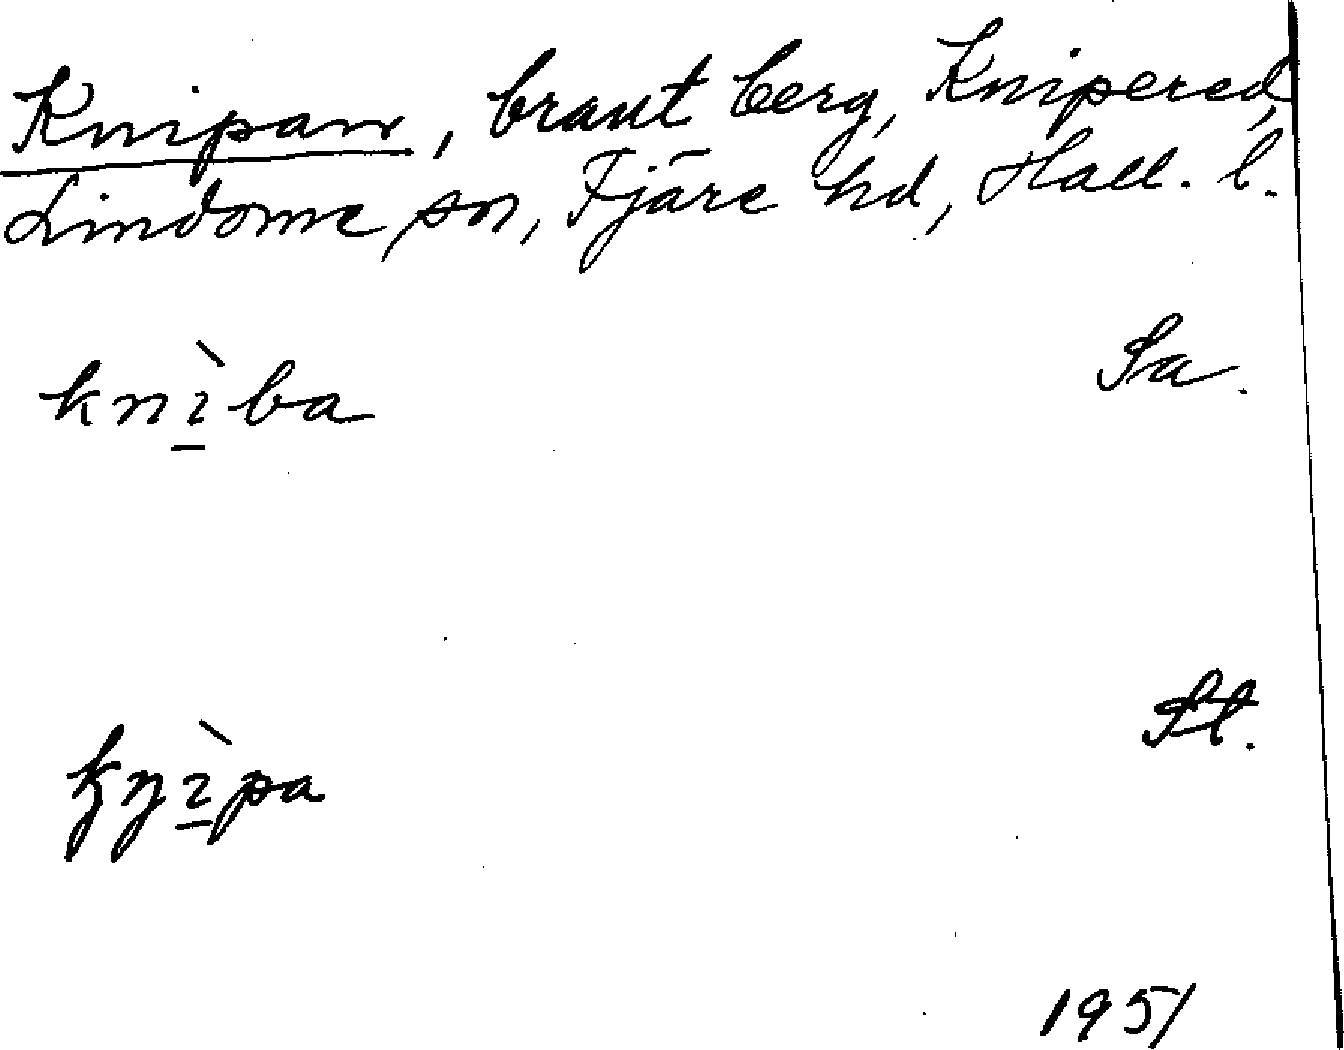 Knipan, brant berg, Knipered,
Lindome sn, Fjäre hd, Hall. l.
Sa.
knı̲̀ba
St.
knı̲̀pa
1951